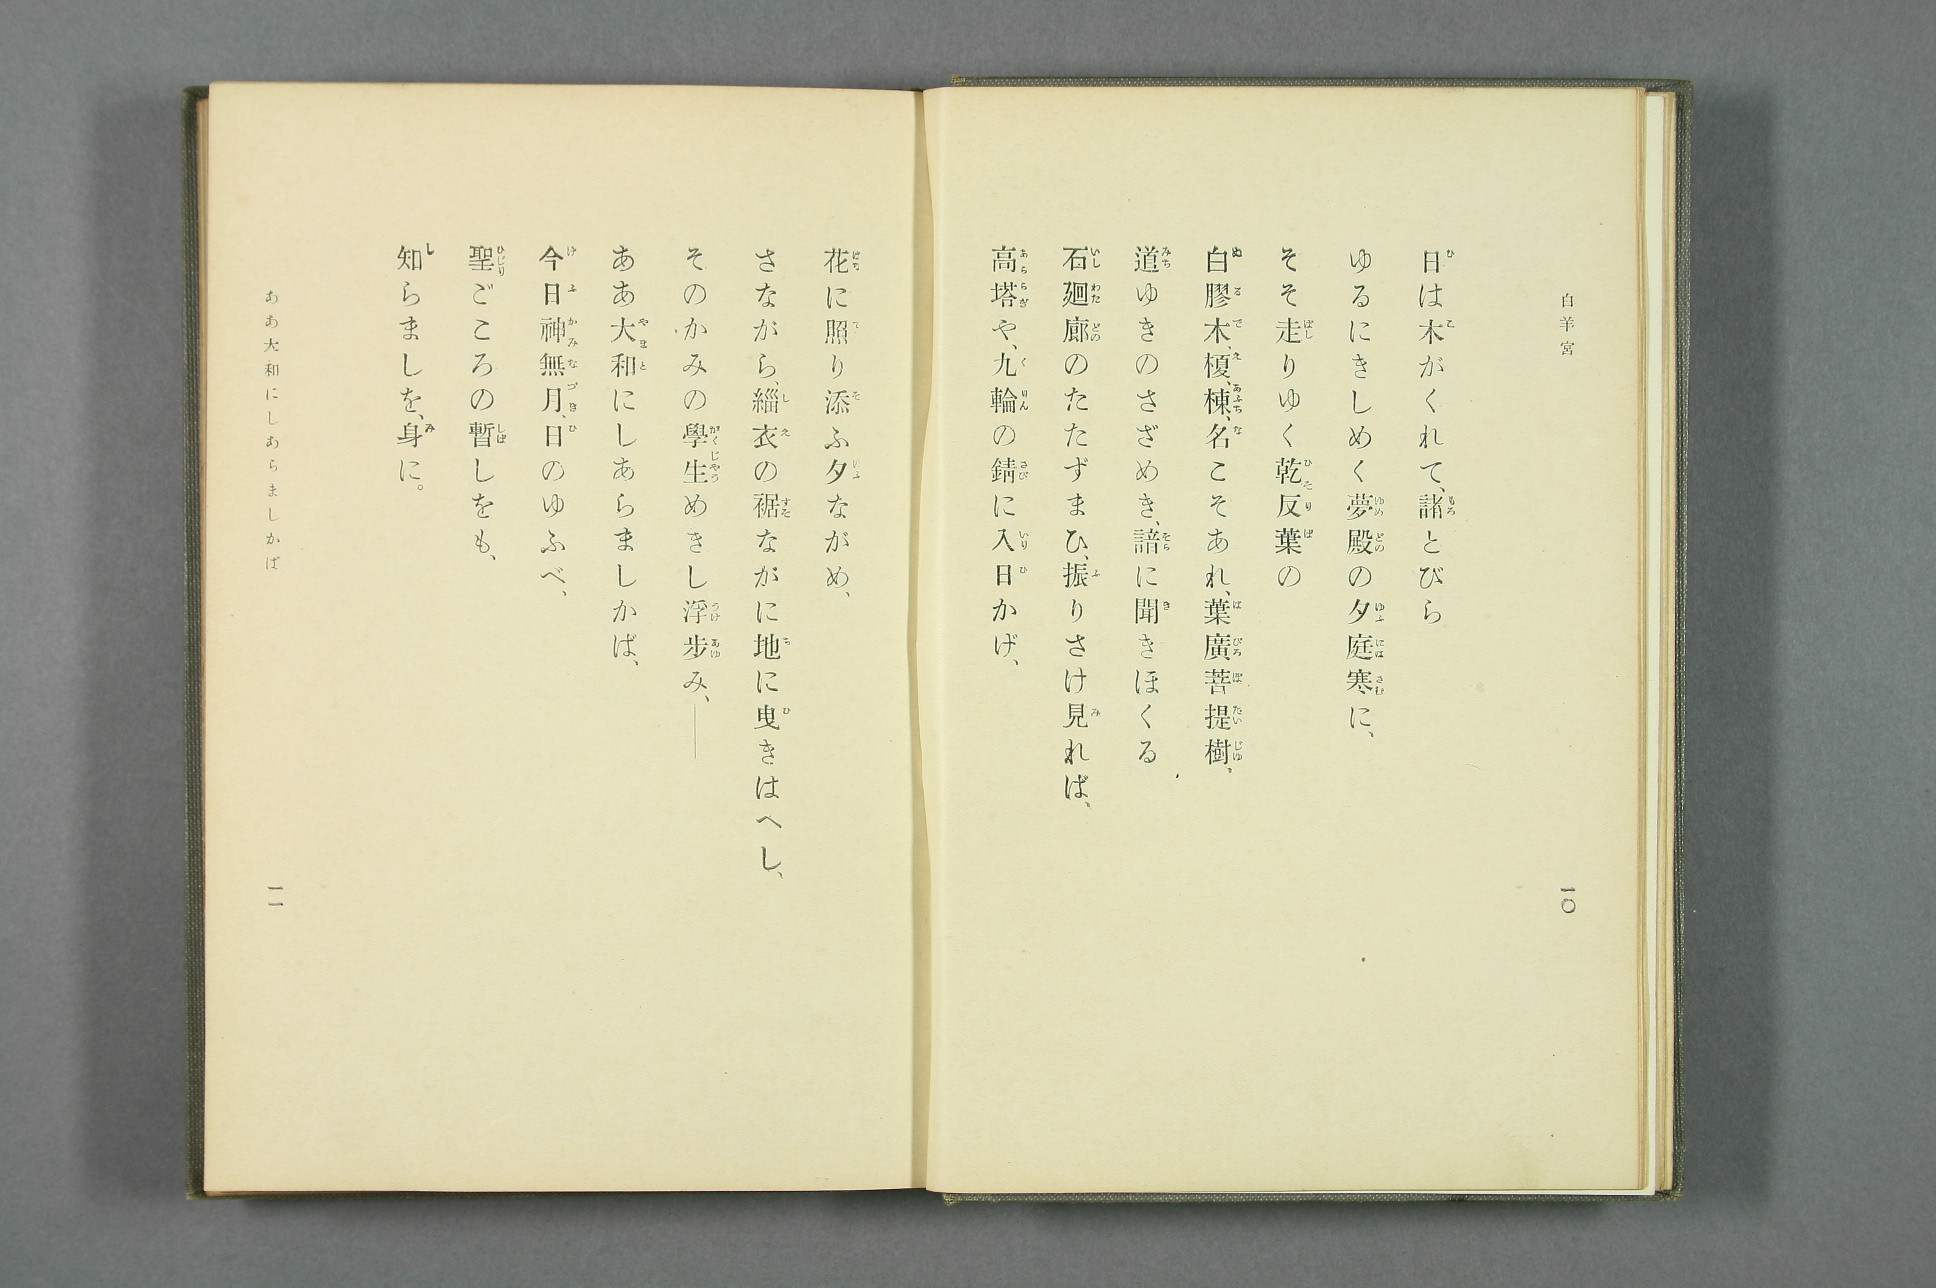 白羊宮
日は木がくれて、諸とびら
ゆるにきしめく夢殿の夕庭寒に、
そそ走りゆく乾反葉の
白膠木、榎、楝、名こそあれ、葉廣菩提樹、
道ゆきのさざめき、諳に聞きほくる
石廻廊のたたずまひ、振りさけ見れば、
高塔や、九輪の錆に入日かげ、
一〇
花に照り添ふ夕ながめ、
さながら、緇衣の裾ながに地に曳きはへし、
そのかみの學生めきし浮歩み、――
ああ大和にしあらましかば、
今日神無月、日のゆふべ、
聖ごころの暫しをも、
知らましを、身に。
ああ大和にしあらましかば
一一